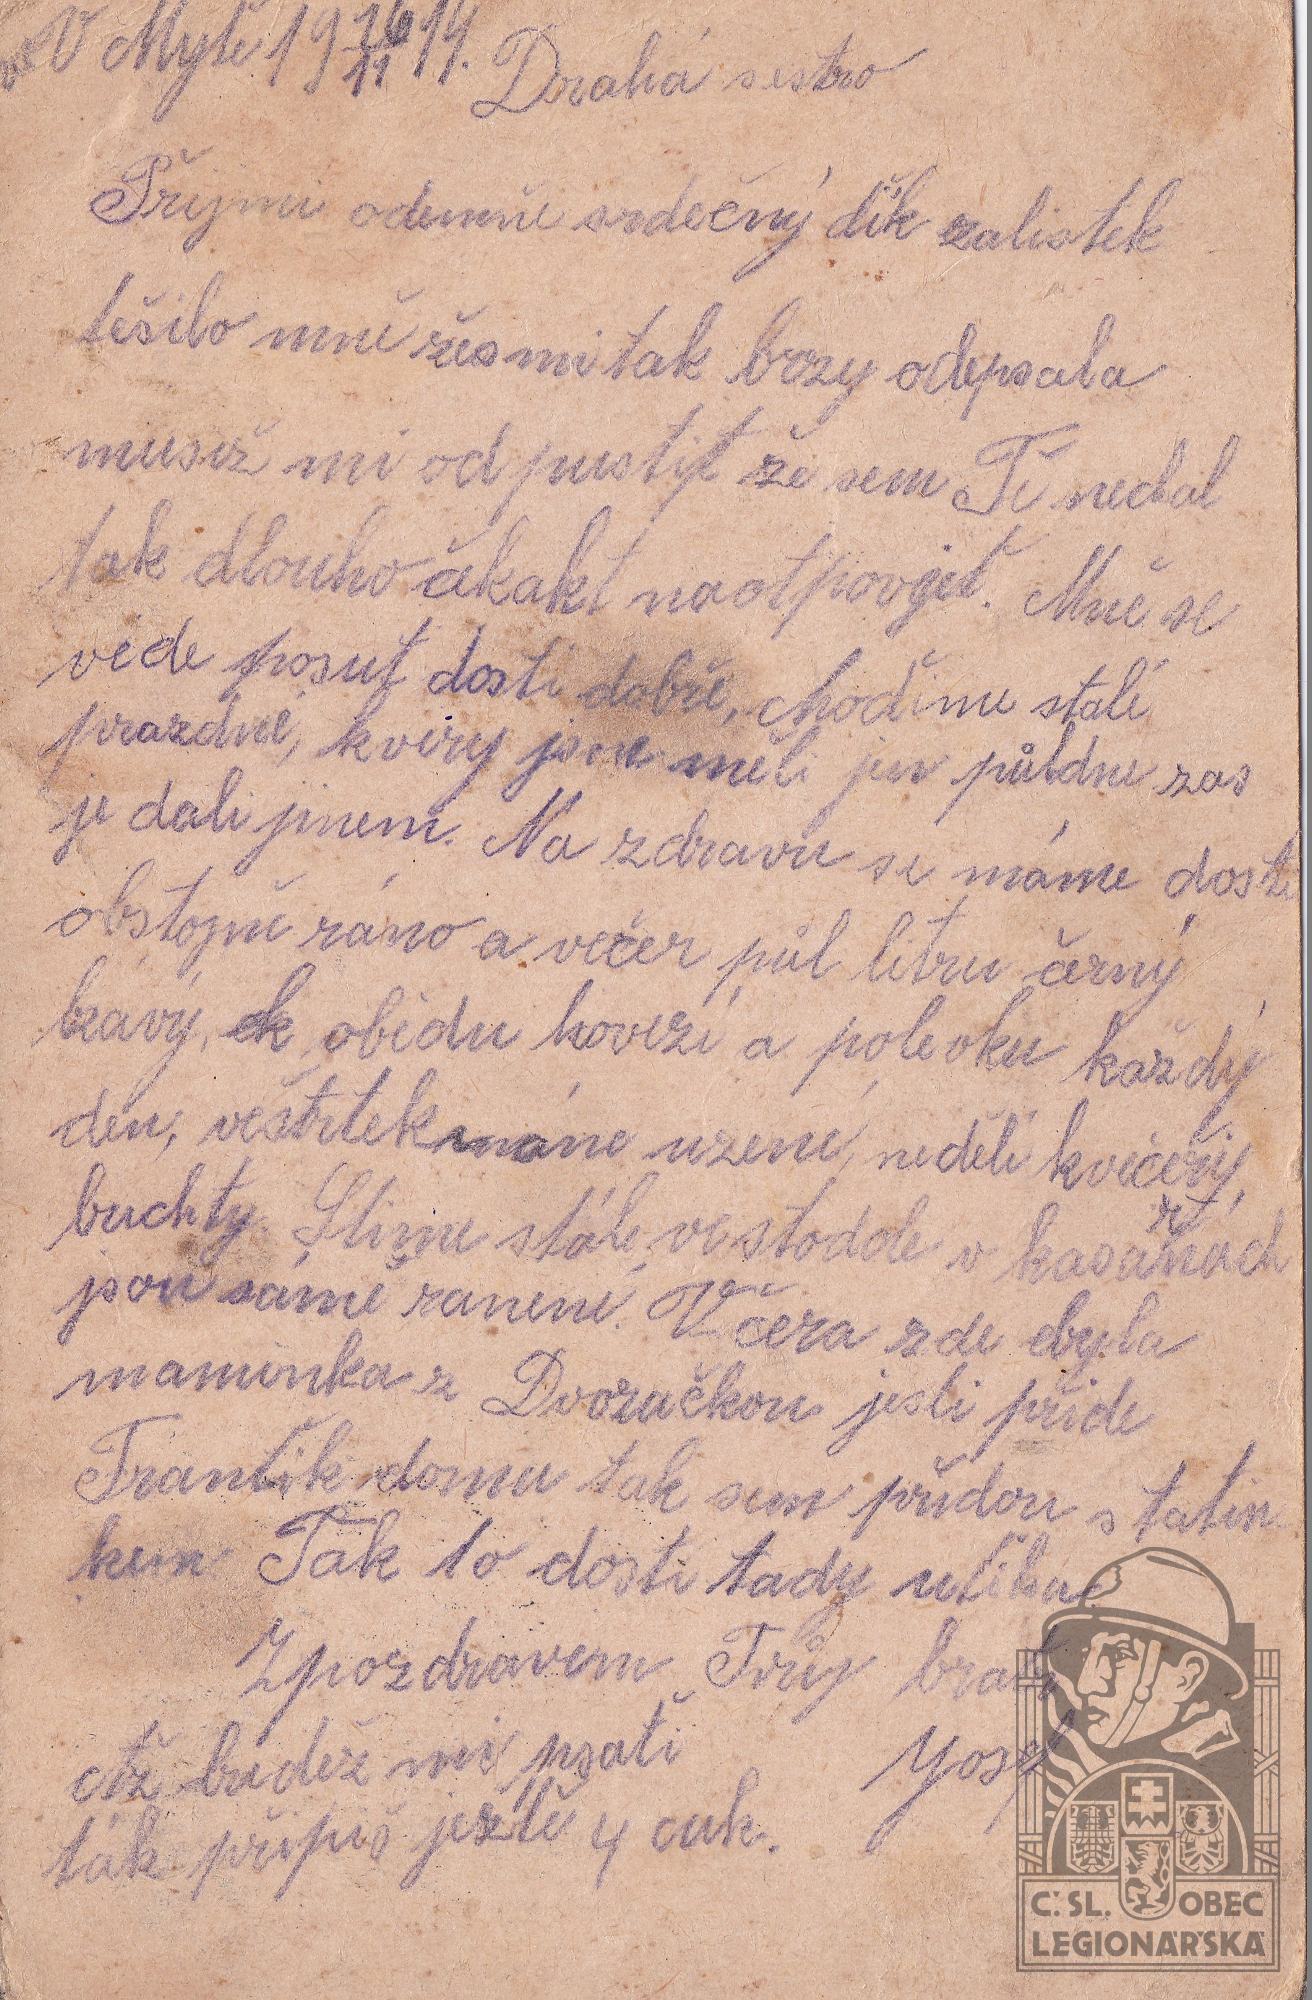 V Mytě 19 16/11 14. Drahá sestro
Přijmi odemně srdečný dík zalistek
těšilo mně žes mi tak brzy odepsala
musiž mi odpustit že sem Tě nechal
tak dlouho čekakt naotpovjeť. Mně se
vede posuť dosti dobře, chodíme stálí
prazdné, kvéry jsme měli jen půldne zas
je dali jinem. Na zdravu se máme dosti
obstojně ráno a večer půl litru černý
kávý, ek obědu hovězí a polevku každý
den, veštrtek máme uzené, neděli kvečeřy
buchty. Slíme stále ve stodole v kasárnách
jsou sámé ranené. Včera zde byla
maminka z Dvoračkou jesli příde
Frantík domu tak sem přídou s tatin-
kem Tak to dosti tady utíka.
Zpozdravem Tvůj bratr
Josef
etž budež mi psati
ták připiš ježtě 4 cuk.
C.SL. OBEC
LEGIONÁŘSKÁ